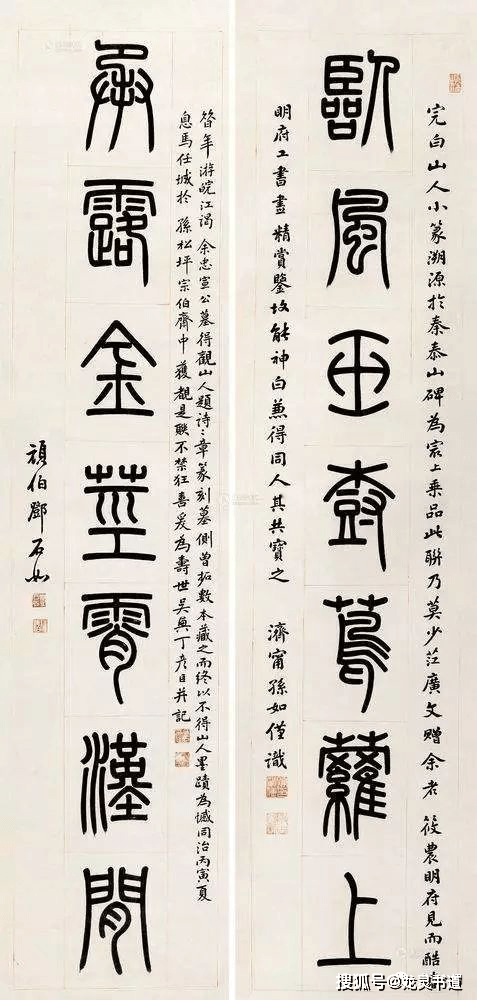 完白山人小篆溯源於秦泰山碑為冣上乘品此聯乃莫少茳廣文贈余者 筱農明府見而酷
臨風玉樹蔦蘿上
明府工書畫精賞鑒故能神白兼得同人其共寶之 濟甯孫如僅識
昝年游皖江謁 余忠宣公墓得觀山人題詩二章篆刻墓側曾拓數本藏之而終以不得山人墨蹟為憾同治丙寅夏
息馬任城於 孫松坪宗伯齊中獲覩是聯不禁狂喜爰為壽世吳興丁彥臣并記
承露金莖霄漢間
頑伯鄧石如
搜狐号@龙灵书道